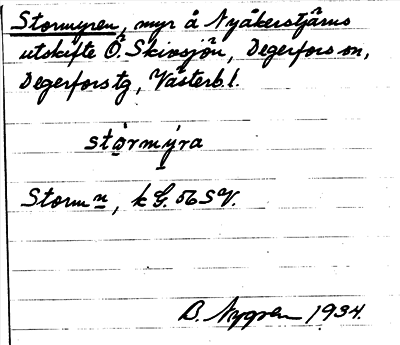 Stormyren, myr å Nyåkerstjärns
utskifte Ö. Skivsjön, Degerfors sn,
Degerfors tg, Västerb. l.
stòrmýra
Storm n, k G. 56 SV.
B. Nygren 1934.